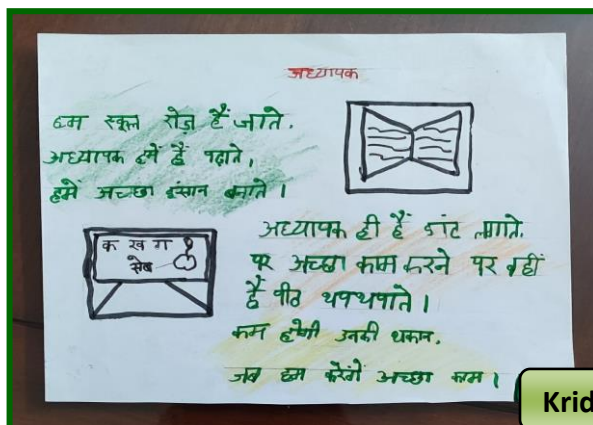 अध्यापक
हम स्कूल रोज़ हैं जाते,
अध्यापक हमें हैं पढ़ाते,
हमें अच्छा इंसान बनाते ।
क ख ग
सेब
अध्यापक ही हैं डांट लगाते,
पर अच्छा काम करने पर वहीं
हैं पीठ थपथपाते ।
कम होगी उनकी थकान,
जब हम करेंगे अच्छा काम ।
Krid